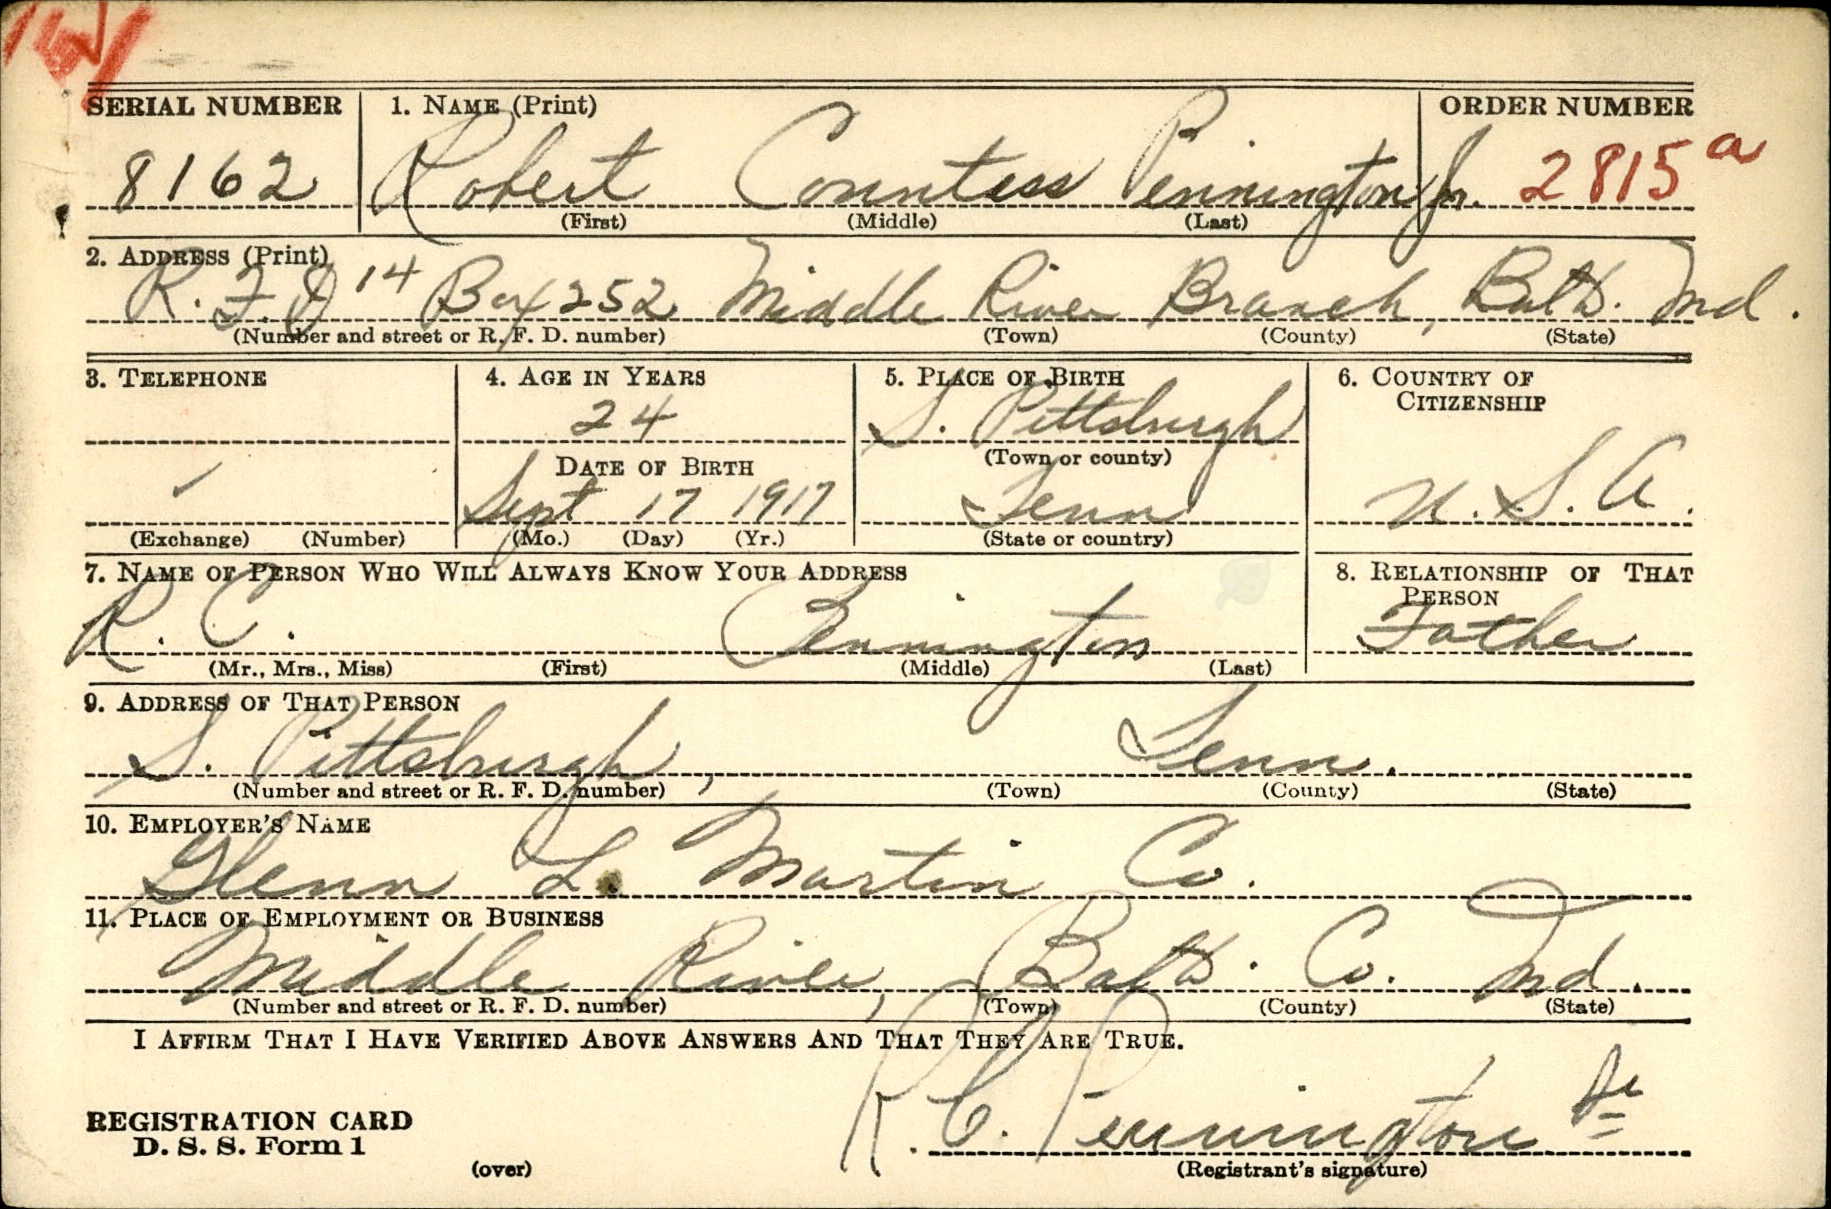 SERIAL NUMBER 1. NAME (Print) ORDER NUMBER
8162 Robert Countess Pennington Jr. 2815 a
(First) (Middle) (Last)
2. ADDRESS (Print)
R.F.D 14 Box 252 Middle River Branch, Balto. Md.
(Number and street or R. F. D. number) (Town) (County) (State)
3. TELEPHONE 4. AGE IN YEARS 5. PLACE OF BIRTH 6. COUNTRY OF
CITIZENSHIP
24 S. Pittsburgh
DATE OF BIRTH (Town or county)
Sept 17 1917 Tenn U.S.A.
(Exchange) (Number) (Mo.) (Day) (Yr.) (State or country)
7. NAME OF PERSON WHO WILL ALWAYS KNOW YOUR ADDRESS 8. RELATIONSHIP OF THAT
PERSON
R. C. Pennington Father
(Mr., Mrs., Miss) (First) (Middle) (Last)
9. ADDRESS OF THAT PERSON
S. Pittsburgh, Tenn.
(Number and street or R. F. D. number) (Town) (County) (State)
10. EMPLOYER'S NAME
Glenn L. Martin Co.
11. PLACE OF EMPLOYMENT OR BUSINESS
Middle River, Balto. Co. Md.
(Number and street or R. F. D. number) (Town) (County) (State)
I AFFIRM THAT I HAVE VERIFIED ABOVE ANSWERS AND THAT THEY ARE TRUE.
REGISTRATION CARD
D. S. S. Form 1
R. C. Pennington Jr
(over) (Registrant's signature)